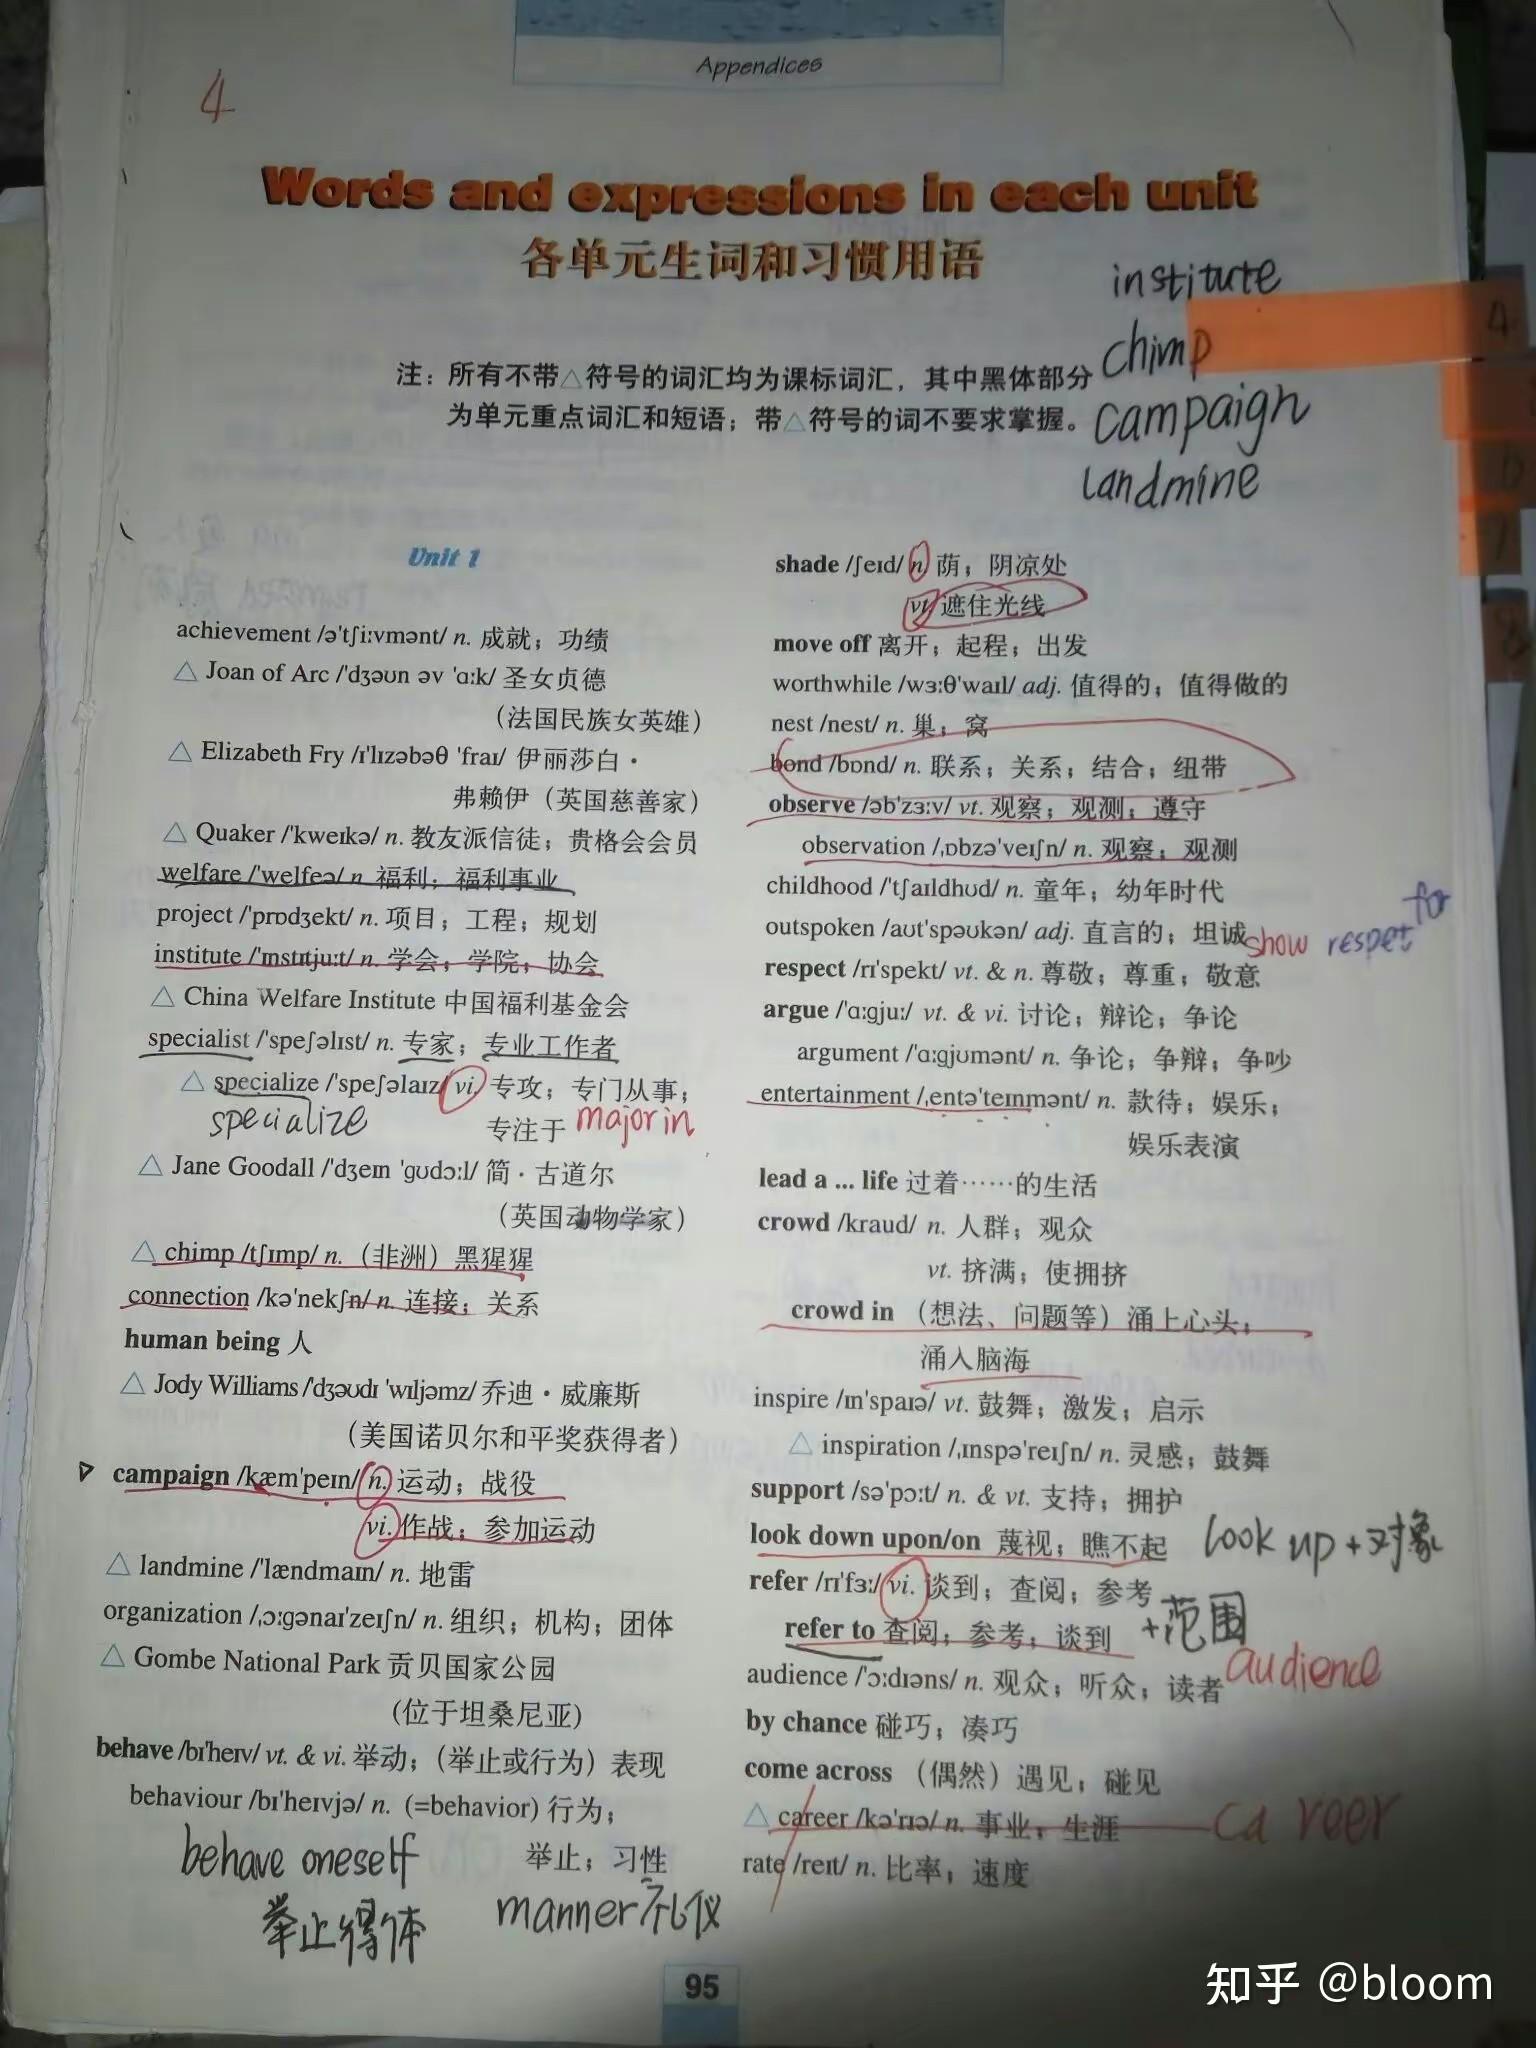 Appendices
4
Words and expressions in each unit
各单元生词和习惯用语
institute
chimp
campaign
landmine
注：所有不带△符号的词汇均为课标词汇，其中黑体部分
为单元重点词汇和短语；带△符号的词不要求掌握。
4
7
8
Unit 1
achievement /ə'tʃi:vmənt/ n. 成就；功绩
△ Joan of Arc /'dʒəʊn əv 'ɑ:k/ 圣女贞德
（法国民族女英雄）
△ Elizabeth Fry /ɪ'lɪzəbəθ 'fraɪ/ 伊丽莎白·
弗赖伊（英国慈善家）
△ Quaker /'kweɪkə/ n. 教友派信徒；贵格会会员
welfare /'welfeə/ n. 福利；福利事业
project /'prɒdʒekt/ n. 项目；工程；规划
institute /'ɪnstɪtju:t/ n. 学会；学院；协会
△ China Welfare Institute 中国福利基金会
specialist /'speʃəlɪst/ n. 专家；专业工作者
△ specialize /'speʃəlaɪz/ vi. 专攻；专门从事；
specialize 专注于 major in
△ Jane Goodall /'dʒeɪn 'ɡʊdɔ:l/ 简·古道尔
（英国动物学家）
△ chimp /tʃɪmp/ n.（非洲）黑猩猩
connection /kə'nekʃn/ n. 连接；关系
human being 人
△ Jody Williams /'dʒəʊdɪ 'wɪljəmz/ 乔迪·威廉斯
（美国诺贝尔和平奖获得者）
campaign /kæm'peɪn/ n. 运动；战役
vi. 作战；参加运动
△ landmine /'lændmaɪn/ n. 地雷
organization /ˌɔ:ɡənaɪ'zeɪʃn/ n. 组织；机构；团体
△ Gombe National Park 贡贝国家公园
(位于坦桑尼亚)
behave /bɪ'heɪv/ vt. & vi. 举动；（举止或行为）表现
behaviour /bɪ'heɪvjə/ n. (=behavior) 行为；
behave oneself 举止；习性
举止得体 manner礼仪
shade /ʃeɪd/ n. 荫；阴凉处
vt. 遮住光线
move off 离开；起程；出发
worthwhile /wɜ:θ'waɪl/ adj. 值得的；值得做的
nest /nest/ n. 巢；窝
bond /bɒnd/ n. 联系；关系；结合；纽带
observe /əb'zɜ:v/ vt. 观察；观测；遵守
observation /ˌɒbzə'veɪʃn/ n. 观察；观测
childhood /'tʃaɪldhʊd/ n. 童年；幼年时代
outspoken /aʊt'spəʊkən/ adj. 直言的；坦诚 show respet for
respect /rɪ'spekt/ vt. & n. 尊敬；尊重；敬意
argue /'ɑ:ɡju:/ vt. & vi. 讨论；辩论；争论
argument /'ɑ:ɡjʊmənt/ n. 争论；争辩；争吵
entertainment /ˌentə'teɪnmənt/ n. 款待；娱乐；
娱乐表演
lead a ... life 过着……的生活
crowd /kraud/ n. 人群；观众
vt. 挤满；使拥挤
crowd in （想法、问题等）涌上心头；
涌入脑海
inspire /ɪn'spaɪə/ vt. 鼓舞；激发；启示
△ inspiration /ˌɪnspə'reɪʃn/ n. 灵感；鼓舞
support /sə'pɔ:t/ n. & vt. 支持；拥护
look down upon/on 蔑视；瞧不起 look up + 对象
refer /rɪ'fɜ:/ vi. 谈到；查阅；参考
refer to 查阅；参考；谈到 +范围
audience /'ɔ:dɪəns/ n. 观众；听众；读者 audience
by chance 碰巧；凑巧
come across （偶然）遇见；碰见
△ career /kə'rɪə/ n. 事业；生涯 ca reer
rate /reɪt/ n. 比率；速度
95
知乎 @bloom